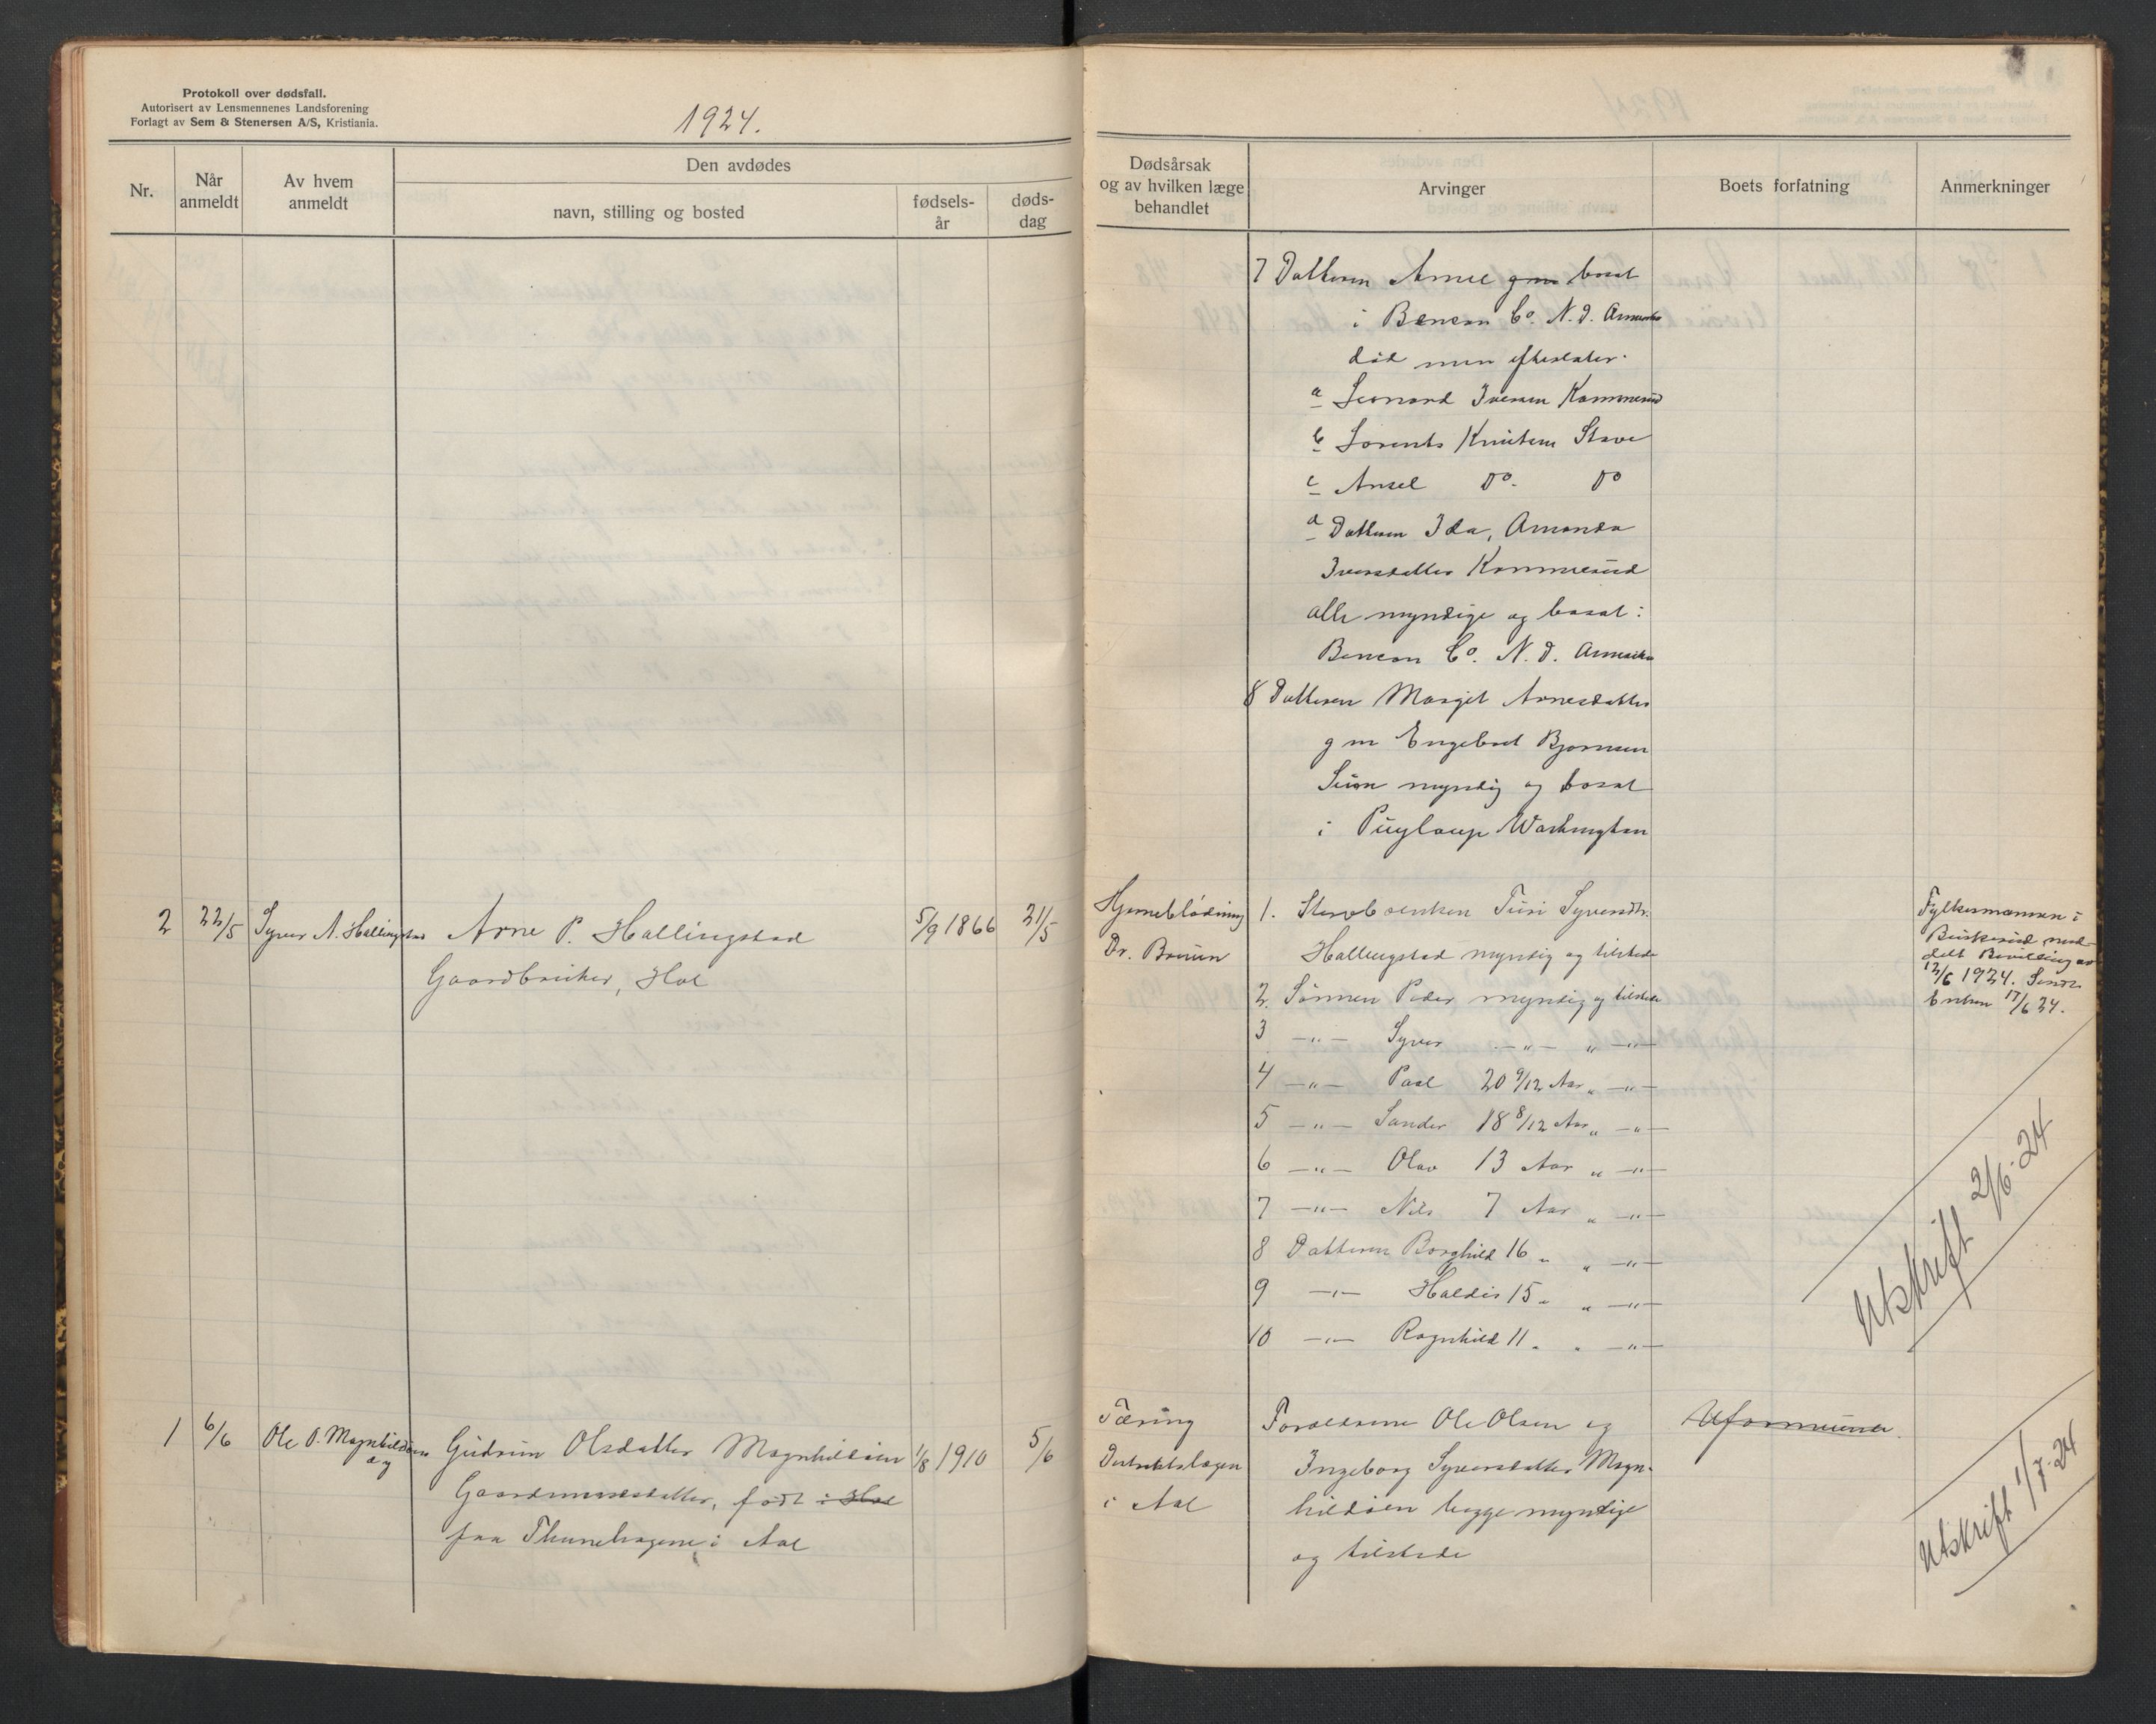 Protokoll over dødsfall.
Autorisert av Lensmennenes Landsforening
Forlagt av Sem & Stenersen A/S, Kristiania.
1924.
Nr.
Når anmeldt
Av hvem anmeldt
Den avdødes
navn, stilling og bosted
fødsels-
år
døds-
dag
2 22/5 Syver A. Hallingstad Arne P. Hallingstad 5/9 1866 21/5
Gaardbruker, Hol
1 6/6 Ole O. Magnhildøen Gudrun Olsdatter Magnhildøien 1/8 1910 5/6
Gaardmandsdatter, født i Hol
paa Thunehagene i Aal
Dødsårsak
og av hvilken læge
behandlet
Arvinger
Boets forfatning
Anmerkninger
7 Datteren Amel gm bosat
i Benson Co. N. D. Amerika
død men efterlater.
a Leonard Iversen Kammerud
b Lorents Knutsen Stave
c Ansel Do. Do
d Datteren Ida, Amanda
Iversdatter Kammerud
alle myndige og bosat i
Benson Co. N. D. Amerika
8 Datteren Margit Arnesdatter
g m Engebret Bjørnsen
myndig og bosat
i Puyloup Washington
Hjerneblødning
Dr. Bruun
1. Stervboenken Turi Syversdtr.
Hallingstad myndig og tilstede
2. Sønnen Peder, myndig og tilstede
3 -"- Syver -"- " -"-
4 -"- Paal 20 9/12 Aar " -"-
5 -"- Sander 18 8/12 Aar " -"-
6 -"- Olav 13 Aar " -"-
7 -"- Nils 7 Aar " -"-
8 Datteren Borghild 16 " " -"-
9 -"- Haldis 15 " " -"-
10 -"- Ragnhild 11 " " -"-
Fylkesmannen i
Buskerud med-
delt Bevilling av
12/6 1924. Sendt
Enken 17/6 24.
Utskrift 2/6.24
Tæring
Distriktslægen
i Aal
Forældrene Ole Olsen og
Ingeborg Syversdatter Magn-
hildøien begge myndige
og tilstede
Uformuende.
Utskrift 1/7.24